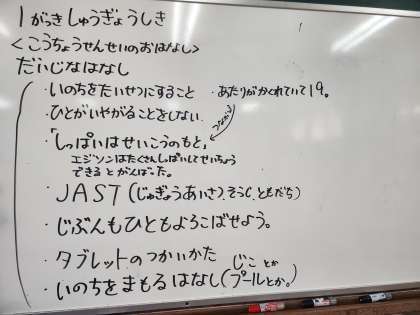 1がっきしゅうぎょうしき
<こうちょうせんせいのおはなし>
だいじなはなし
・いのちをたいせつにすること ・あたりがかくれていて19。
・ひとがいやがることをしない。 つながる
・「しっぱいはせいこうのもと」
エジソンはたくさんしっぱいしてせいちょう
できるとがんばった。
・JAST(じゅぎょうあいさつ、そうじ、ともだち)
・じぶんもひともよろこばせよう。
・タブレットのつかいかた
・いのちをまもるはなし(プールとか。)
じことか